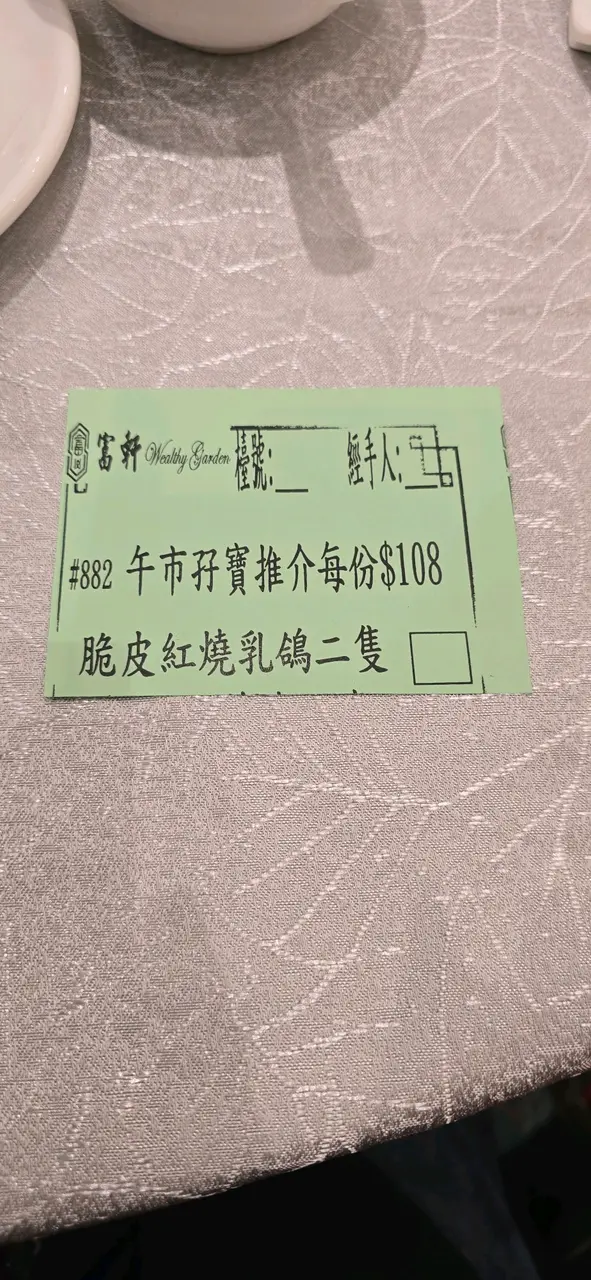 富軒 Wealthy Garden 檯號:__ 經手人:__
#882 午市孖寶推介每份$108
脆皮紅燒乳鴿二隻